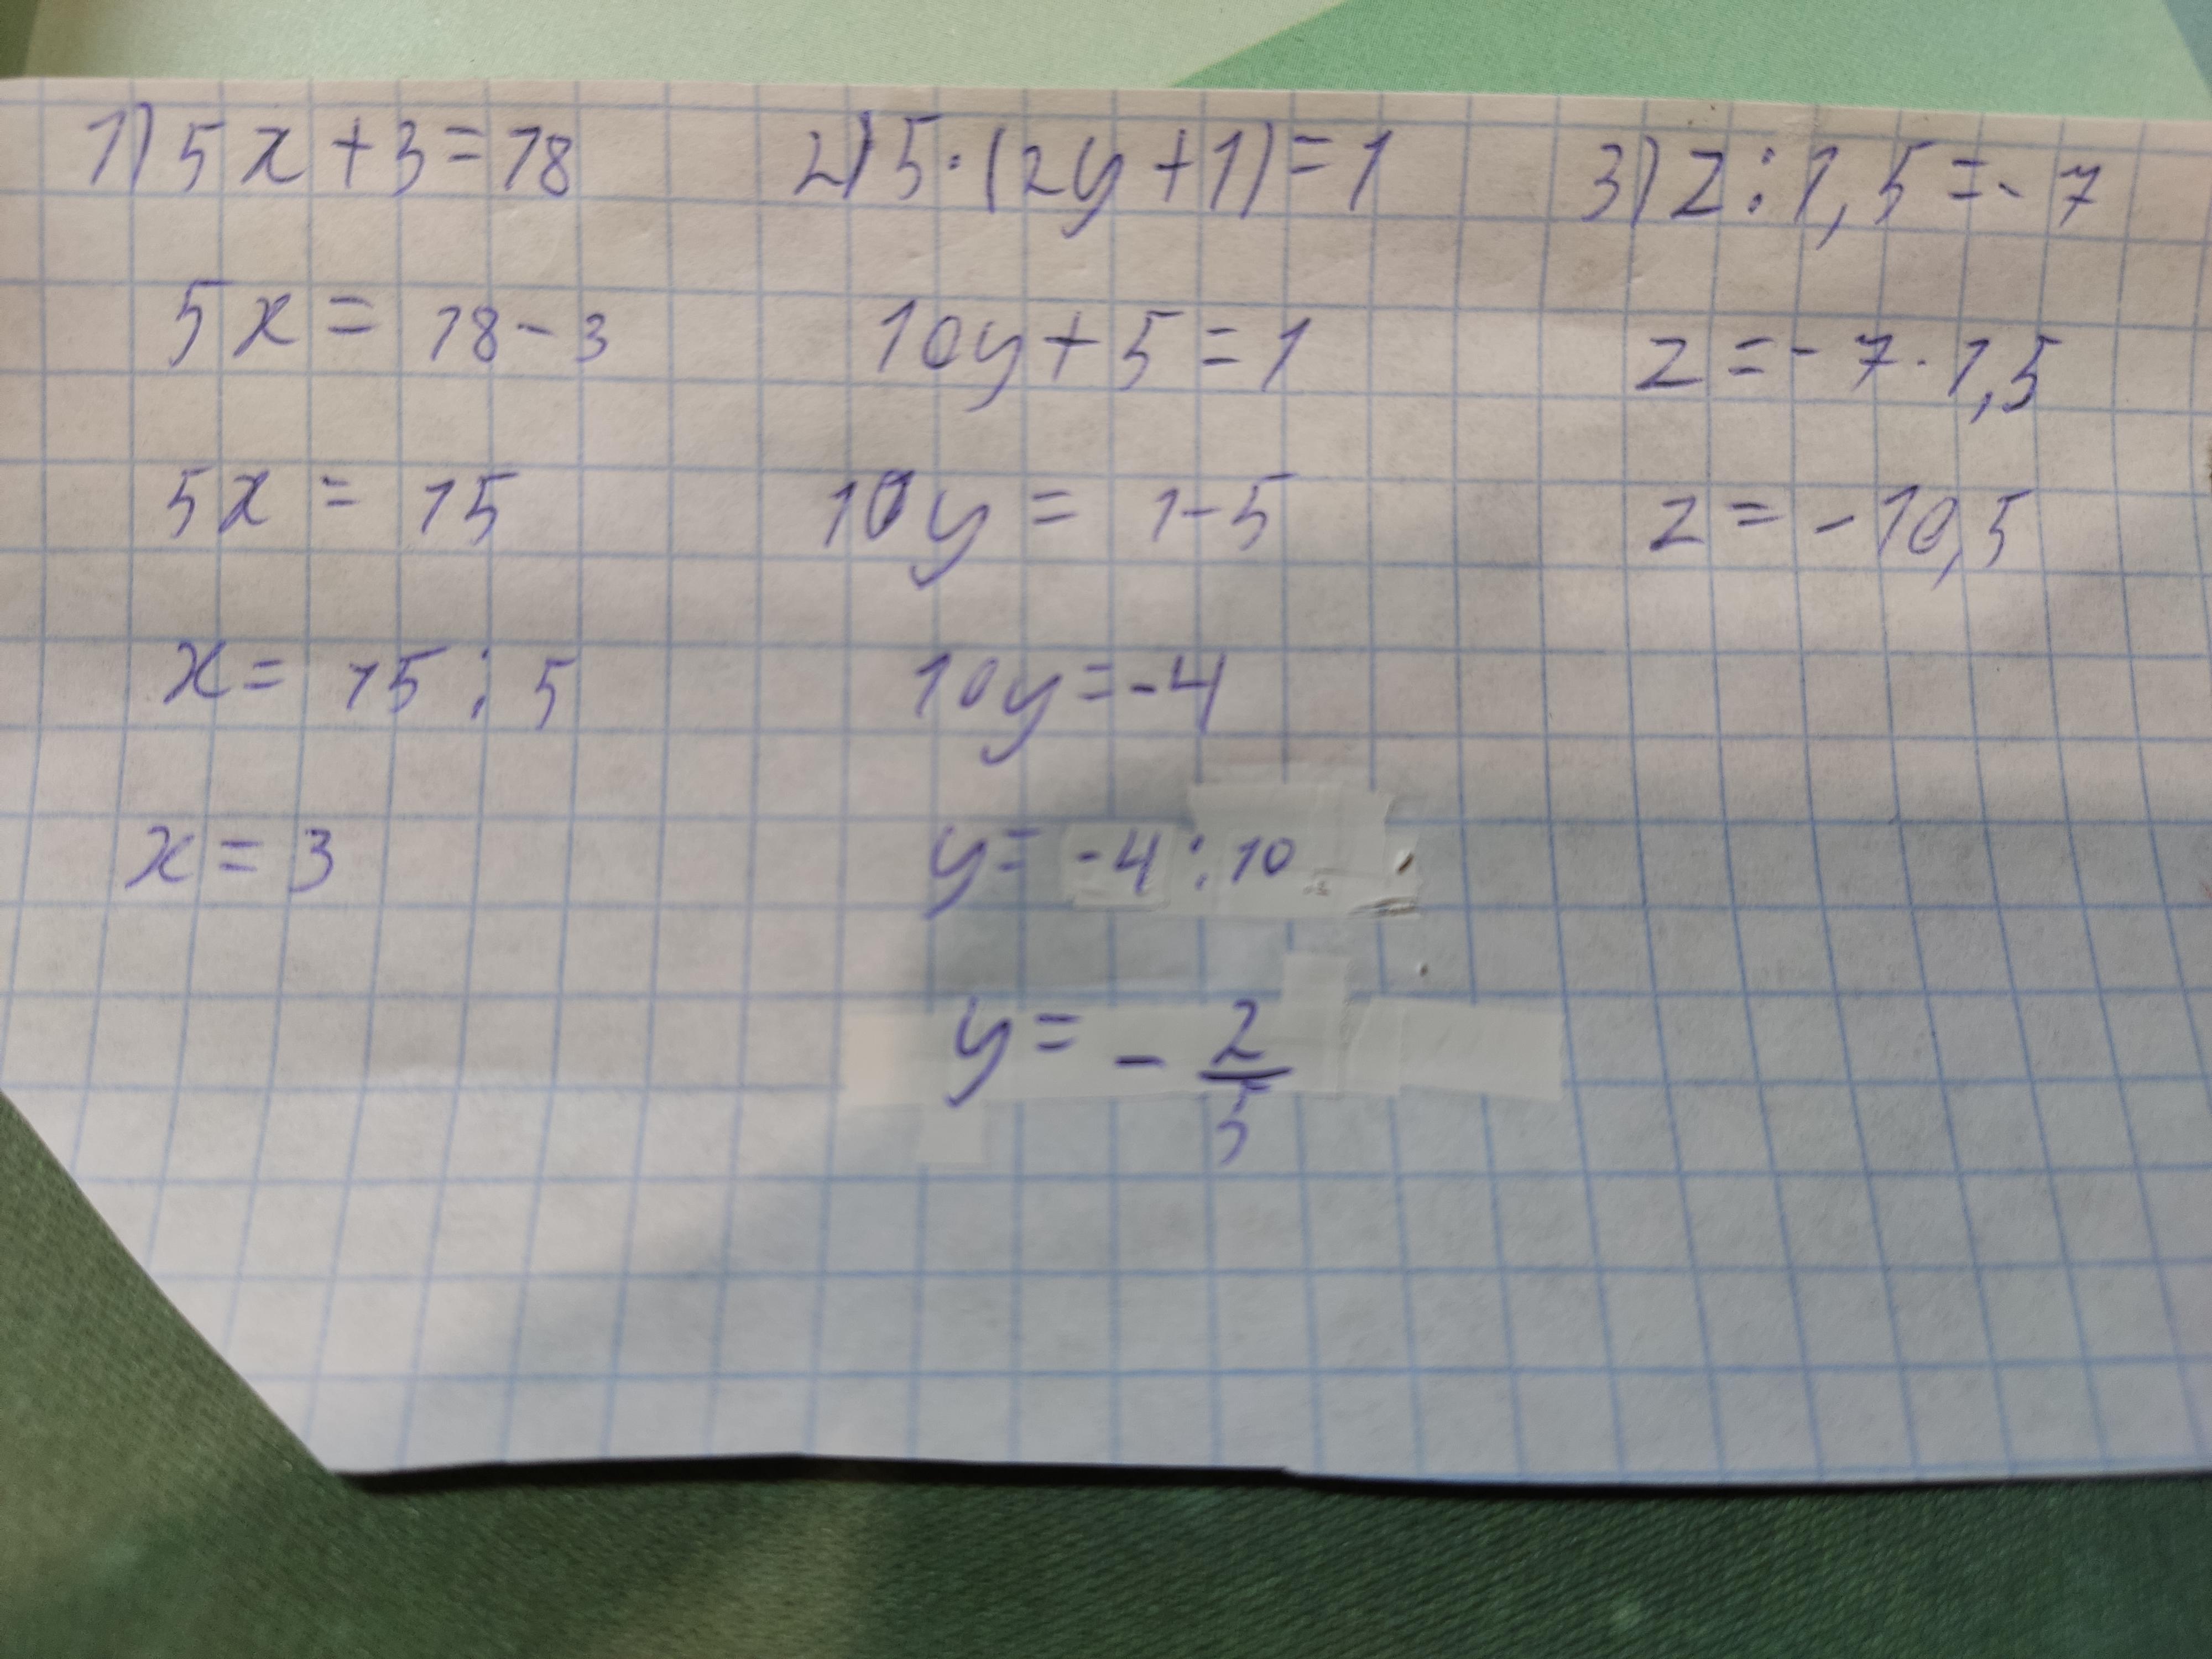 1) 5x+3=18
5x = 18-3
5x = 15
x = 15:5
x = 3
2) 5·(2y+1)=1
10y+5=1
10y = 1-5
10y=-4
y= -4:10
y= - 2/5
3) z:1,5=-7
z=-7·1,5
z=-10,5